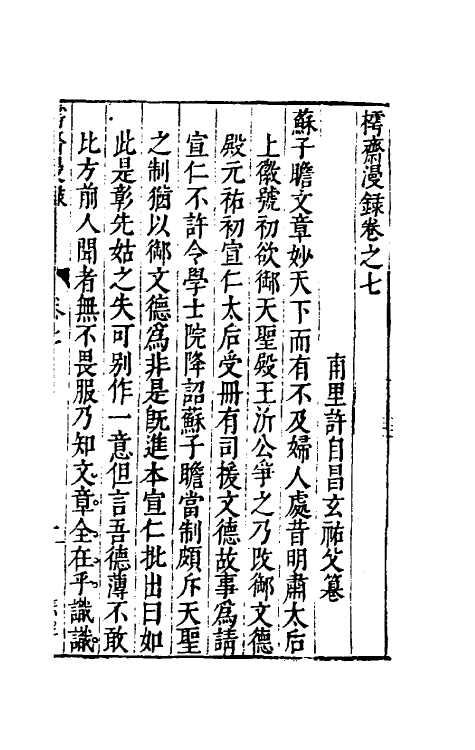 樗齋漫錄卷之七
甫里許自昌玄祐父纂
蘇子瞻文章妙天下而有不及婦人處昔明肅太后
上徽號初欲御天聖殿王沂公爭之乃改御文德
殿元祐初宣仁太后受冊有司援文德故事爲請
宣仁不許令學士院降詔蘇子瞻當制頗斥天聖
之制猶以御文德爲非是旣進本宣仁批出曰如
此是彰先姑之失可別作一意但言吾德薄不敢
比方前人聞者無不畏服乃知文章全在乎識識
卷七